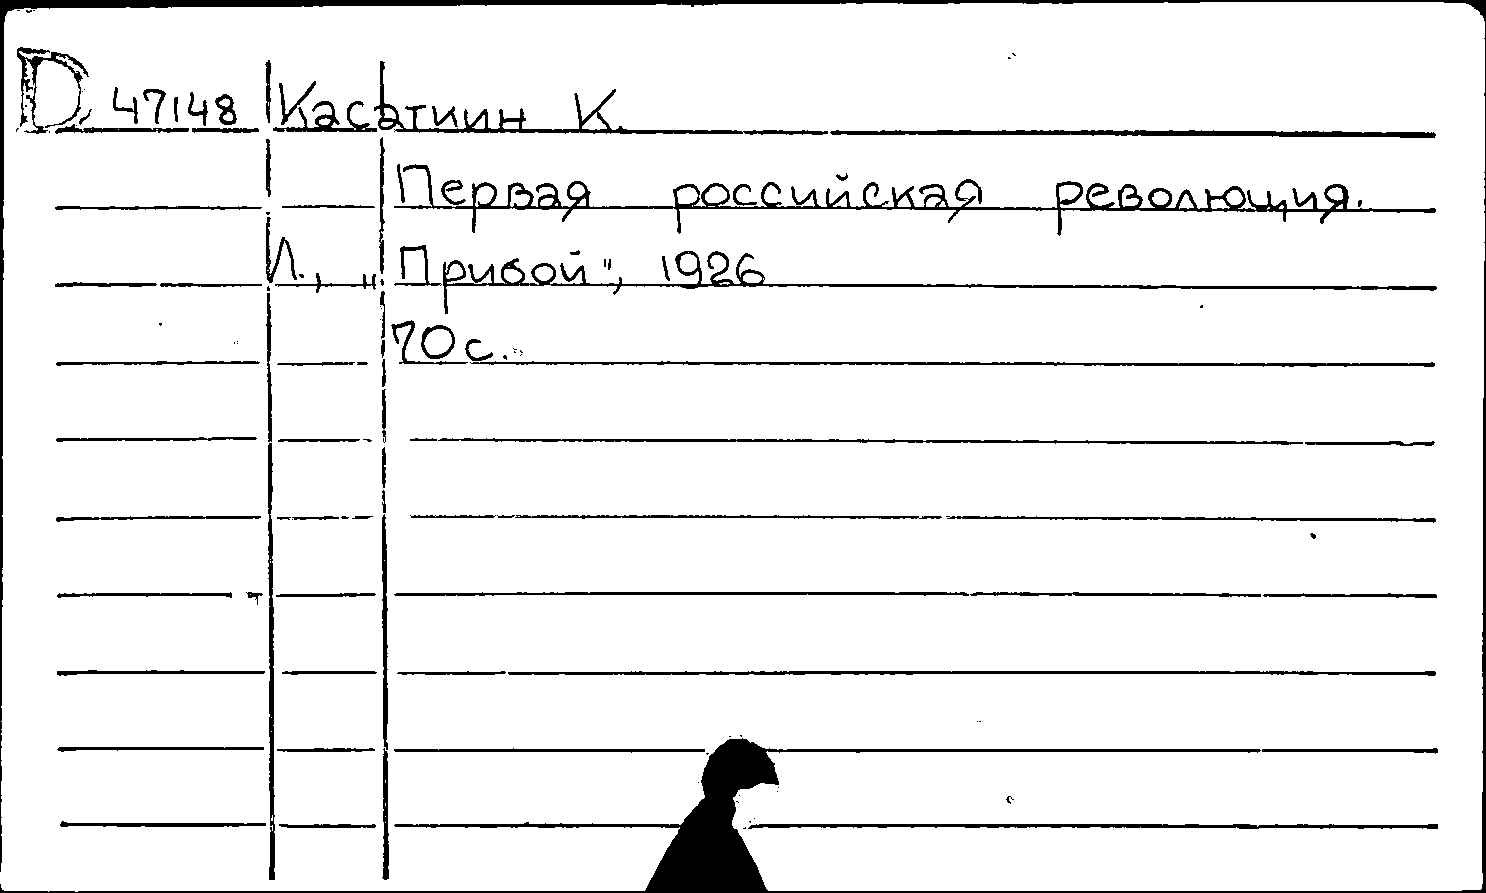 D 47148 Касаткин К.
Первая российская революция.
Л., „Прибой", 1926
70 с.